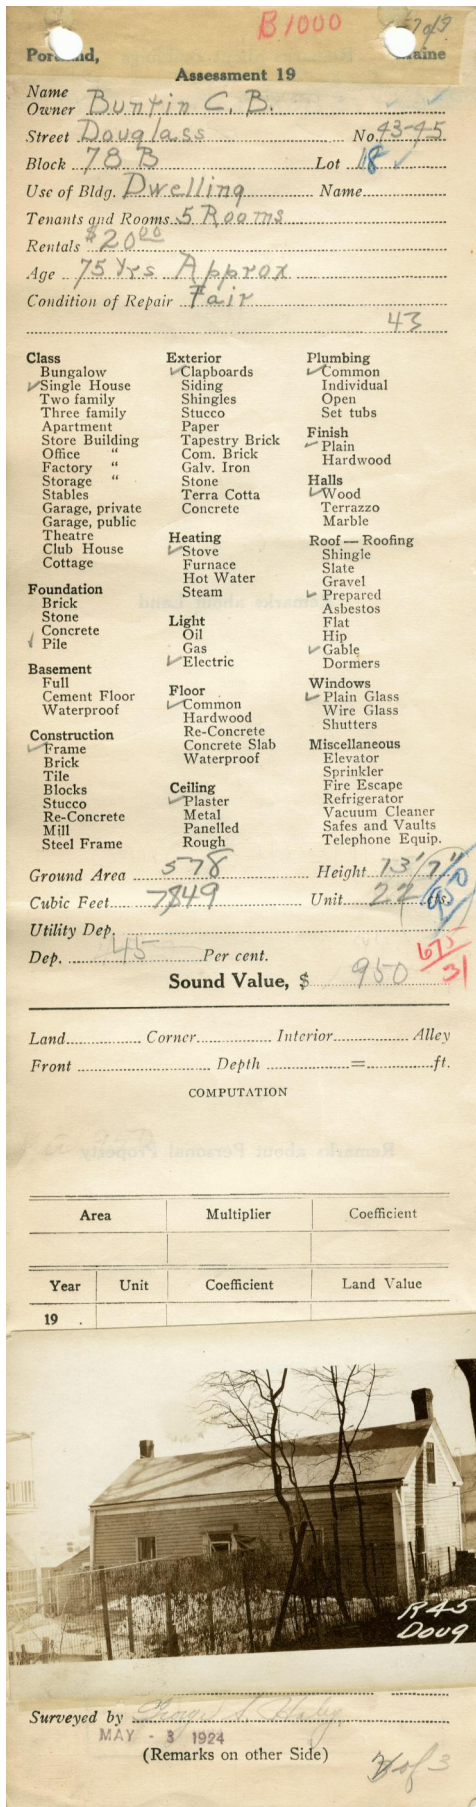 B1000
Portland, Maine
Assessment 19
Name
Owner Buntin C. B.
Street Douglass No. 43-45
Block 78 B Lot 18
Use of Bldg. Dwelling Name
Tenants and Rooms 5 Rooms
Rentals $20.00
Age 75 Yrs Approx
Condition of Repair Fair
43
Class
Bungalow
✓ Single House
Two family
Three family
Apartment
Store Building
Office "
Factory "
Storage "
Stables
Garage, private
Garage, public
Theatre
Club House
Cottage
Foundation
Brick
Stone
Concrete
✓ Pile
Basement
Full
Cement Floor
Waterproof
Construction
✓ Frame
Brick
Tile
Blocks
Stucco
Re-Concrete
Mill
Steel Frame
Exterior
✓ Clapboards
Siding
Shingles
Stucco
Paper
Tapestry Brick
Com. Brick
Galv. Iron
Stone
Terra Cotta
Concrete
Heating
✓ Stove
Furnace
Hot Water
Steam
Light
Oil
Gas
✓ Electric
Floor
✓ Common
Hardwood
Re-Concrete
Concrete Slab
Waterproof
Ceiling
✓ Plaster
Metal
Panelled
Rough
Plumbing
✓ Common
Individual
Open
Set tubs
Finish
✓ Plain
Hardwood
Halls
✓ Wood
Terrazzo
Marble
Roof — Roofing
Shingle
Slate
Gravel
✓ Prepared
Asbestos
Flat
Hip
✓ Gable
Dormers
Windows
✓ Plain Glass
Wire Glass
Shutters
Miscellaneous
Elevator
Sprinkler
Fire Escape
Refrigerator
Vacuum Cleaner
Safes and Vaults
Telephone Equip.
Ground Area 578 Height 13'7"
Cubic Feet 7849 Unit 22 cts.
950
Utility Dep.
Dep. 45 Per cent.
675
31
Sound Value, $ 950
Land Corner Interior Alley
Front Depth = ft.
COMPUTATION
Remarks about Personal Property
Area Multiplier Coefficient
Year Unit Coefficient Land Value
19 .
R45
Doug
Surveyed by
MAY - 3 1924
(Remarks on other Side)
of 3